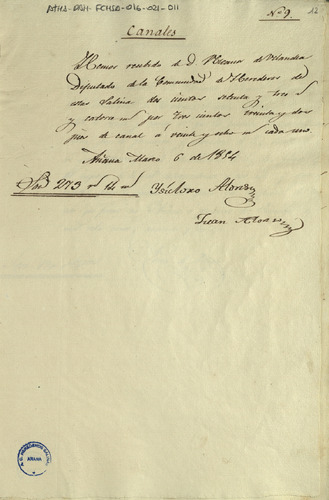 ATHA-DAH-FCHSA-016-021-011
Nº 9.
12
Canales
Hemos recibido de D. Ramon de Vilandia
Diputado de la Comunidad de Herederos de
estas Salinas dos cientos setenta y tres r.
y catorce m. por tres cientos treinta y dos
pies de canal á veinte y ocho m. cada uno.
Añana Marzo 6 de 1834
Son 273 r. 14 m.
Ysidoro Alonso
Juan Alonso
AÑANA